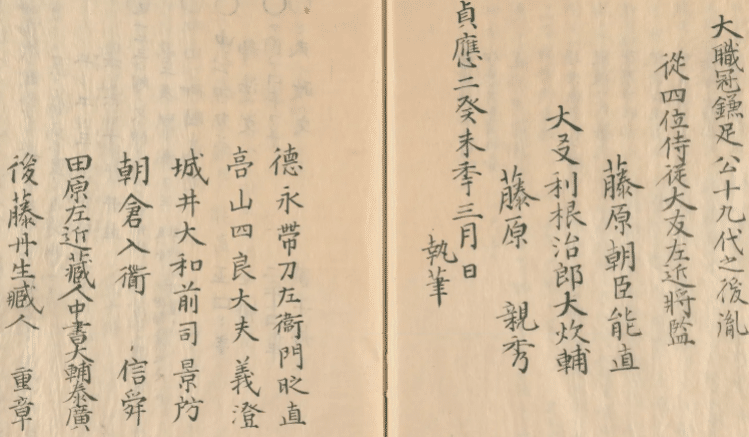 大職冠鎌足公十九代之後胤
従四位侍従大友左近将監
藤原朝臣能直
大友利根治郎大炊輔
藤原 親秀
貞應二癸未季三月日
執筆
德永帶刀左衞門 直
高山四良大夫義澄
城井大和前司景防
朝倉入衞 信舜
田原左近藏人中書大輔泰廣
後藤丹生藏人 重章